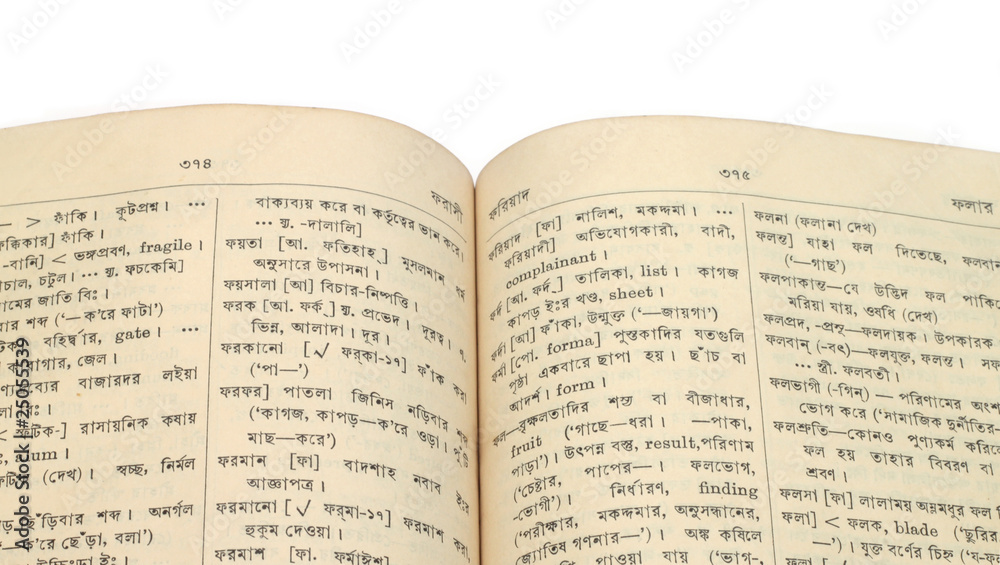 ৩৭৪
ফরাসী
— > ফাঁকি। কূটপ্রশ্ন। ...
ফকিকার] ফাঁকি।
-বানি] < ভঙ্গপ্রবণ, fragile।
চাল, চটুল। ... য়্. ফচকেমি]
ামের জাতি বিঃ।
বার শব্দ ('—ক'রে ফাটা')
বহির্দ্বার, gate। ...
কারাগার, জেল।
ণ্যদ্রব্যের বাজারদর লইয়া
রাসায়নিক কষায়
um।
(দেখ)। স্বচ্ছ, নির্মল
ছুঁড়িবার শব্দ। অনর্গল
—ক'রে ছোঁড়া, বলা')
বাক্যব্যয় করে বা কর্তৃত্বের ভান করে।
... য়্. -দালালি]
ফয়তা [আ. ফতিহাহ্] মুসলমান ধর্ম
অনুসারে উপাসনা।
ফয়সালা [আ] বিচার-নিষ্পত্তি।
ফরক [আ. ফর্ক্] য়্. প্রভেদ। দূরত্ব।
ভিন্ন, আলাদা। দূর।
ফরকানো [√ ফর্‌কা-১৭] ফাঁক করা
('পা—')
ফরফর] পাতলা জিনিস নড়িবার শব্দ
('কাগজ, কাপড়—ক'রে ওড়া। পুঁটি
মাছ—করে')
ফরমান [ফা] বাদশাহ নবাব ইঃর
আজ্ঞাপত্র।
ফরমানো [√ ফর্‌মা-১৭] ফরমাশ করা,
হুকুম দেওয়া।
ফরমাশ [ফা. ফর্মাঈশ]
৩৭৫
ফরিয়াদ
ফলার
ফরিয়াদ [ফা] নালিশ, মকদ্দমা। ...
ফরিয়াদী] অভিযোগকারী, বাদী,
complainant।
ফর্দ [আ. ফর্দ্] তালিকা, list। কাগজ
কাপড় ইঃর খণ্ড, sheet।
ফর্দা [আ] ফাঁকা, উন্মুক্ত ('—জায়গা')
ফর্মা [পো. forma] পুস্তকাদির যতগুলি
পৃষ্ঠা একবারে ছাপা হয়। ছাঁচ বা
আদর্শ। form।
ফল—বৃক্ষলতাদির শস্য বা বীজাধার,
fruit ('গাছে—ধরা। —পাকা,
পাড়া')। উৎপন্ন বস্তু, result, পরিণাম
('চেষ্টার, পাপের—। ফলভোগ,
-ভোগী')। নির্ধারণ, finding
('পরীক্ষার, মকদ্দমার, অনুসন্ধানের,
জ্যোতিষ গণনার—')। অঙ্ক কষিলে
পাওয়া যায় ('ভাগ-,
ফলনা (ফলানা দেখ)
ফলন্ত] যাহা ফল দিতেছে, ফলবান
('—গাছ')
ফলপাকান্ত—যে উদ্ভিদ ফল পাকি
মরিয়া যায়, ওষধি (দেখ)
ফলপ্রদ, -প্রসূ—ফলদায়ক। উপকারক
ফলবান্ (-বৎ)—ফলযুক্ত, ফলন্ত। সফ
... স্ত্রী. ফলবতী।
ফলভাগী (-গিন্) — পরিণামের অংশ
ভোগ করে ('সামাজিক দুর্নীতির-
ফলশ্রুতি—কোনও পুণ্যকর্ম করিলে
ফল হয় তাহার বিবরণ বা
শ্রবণ।
ফলসা [ফা] লালাময় অম্লমধুর ফল
ফলা] < ফলক, blade ('ছুরির
—')। যুক্ত বর্ণের চিহ্ন ('য-ফ
Adobe Stock | #250655539